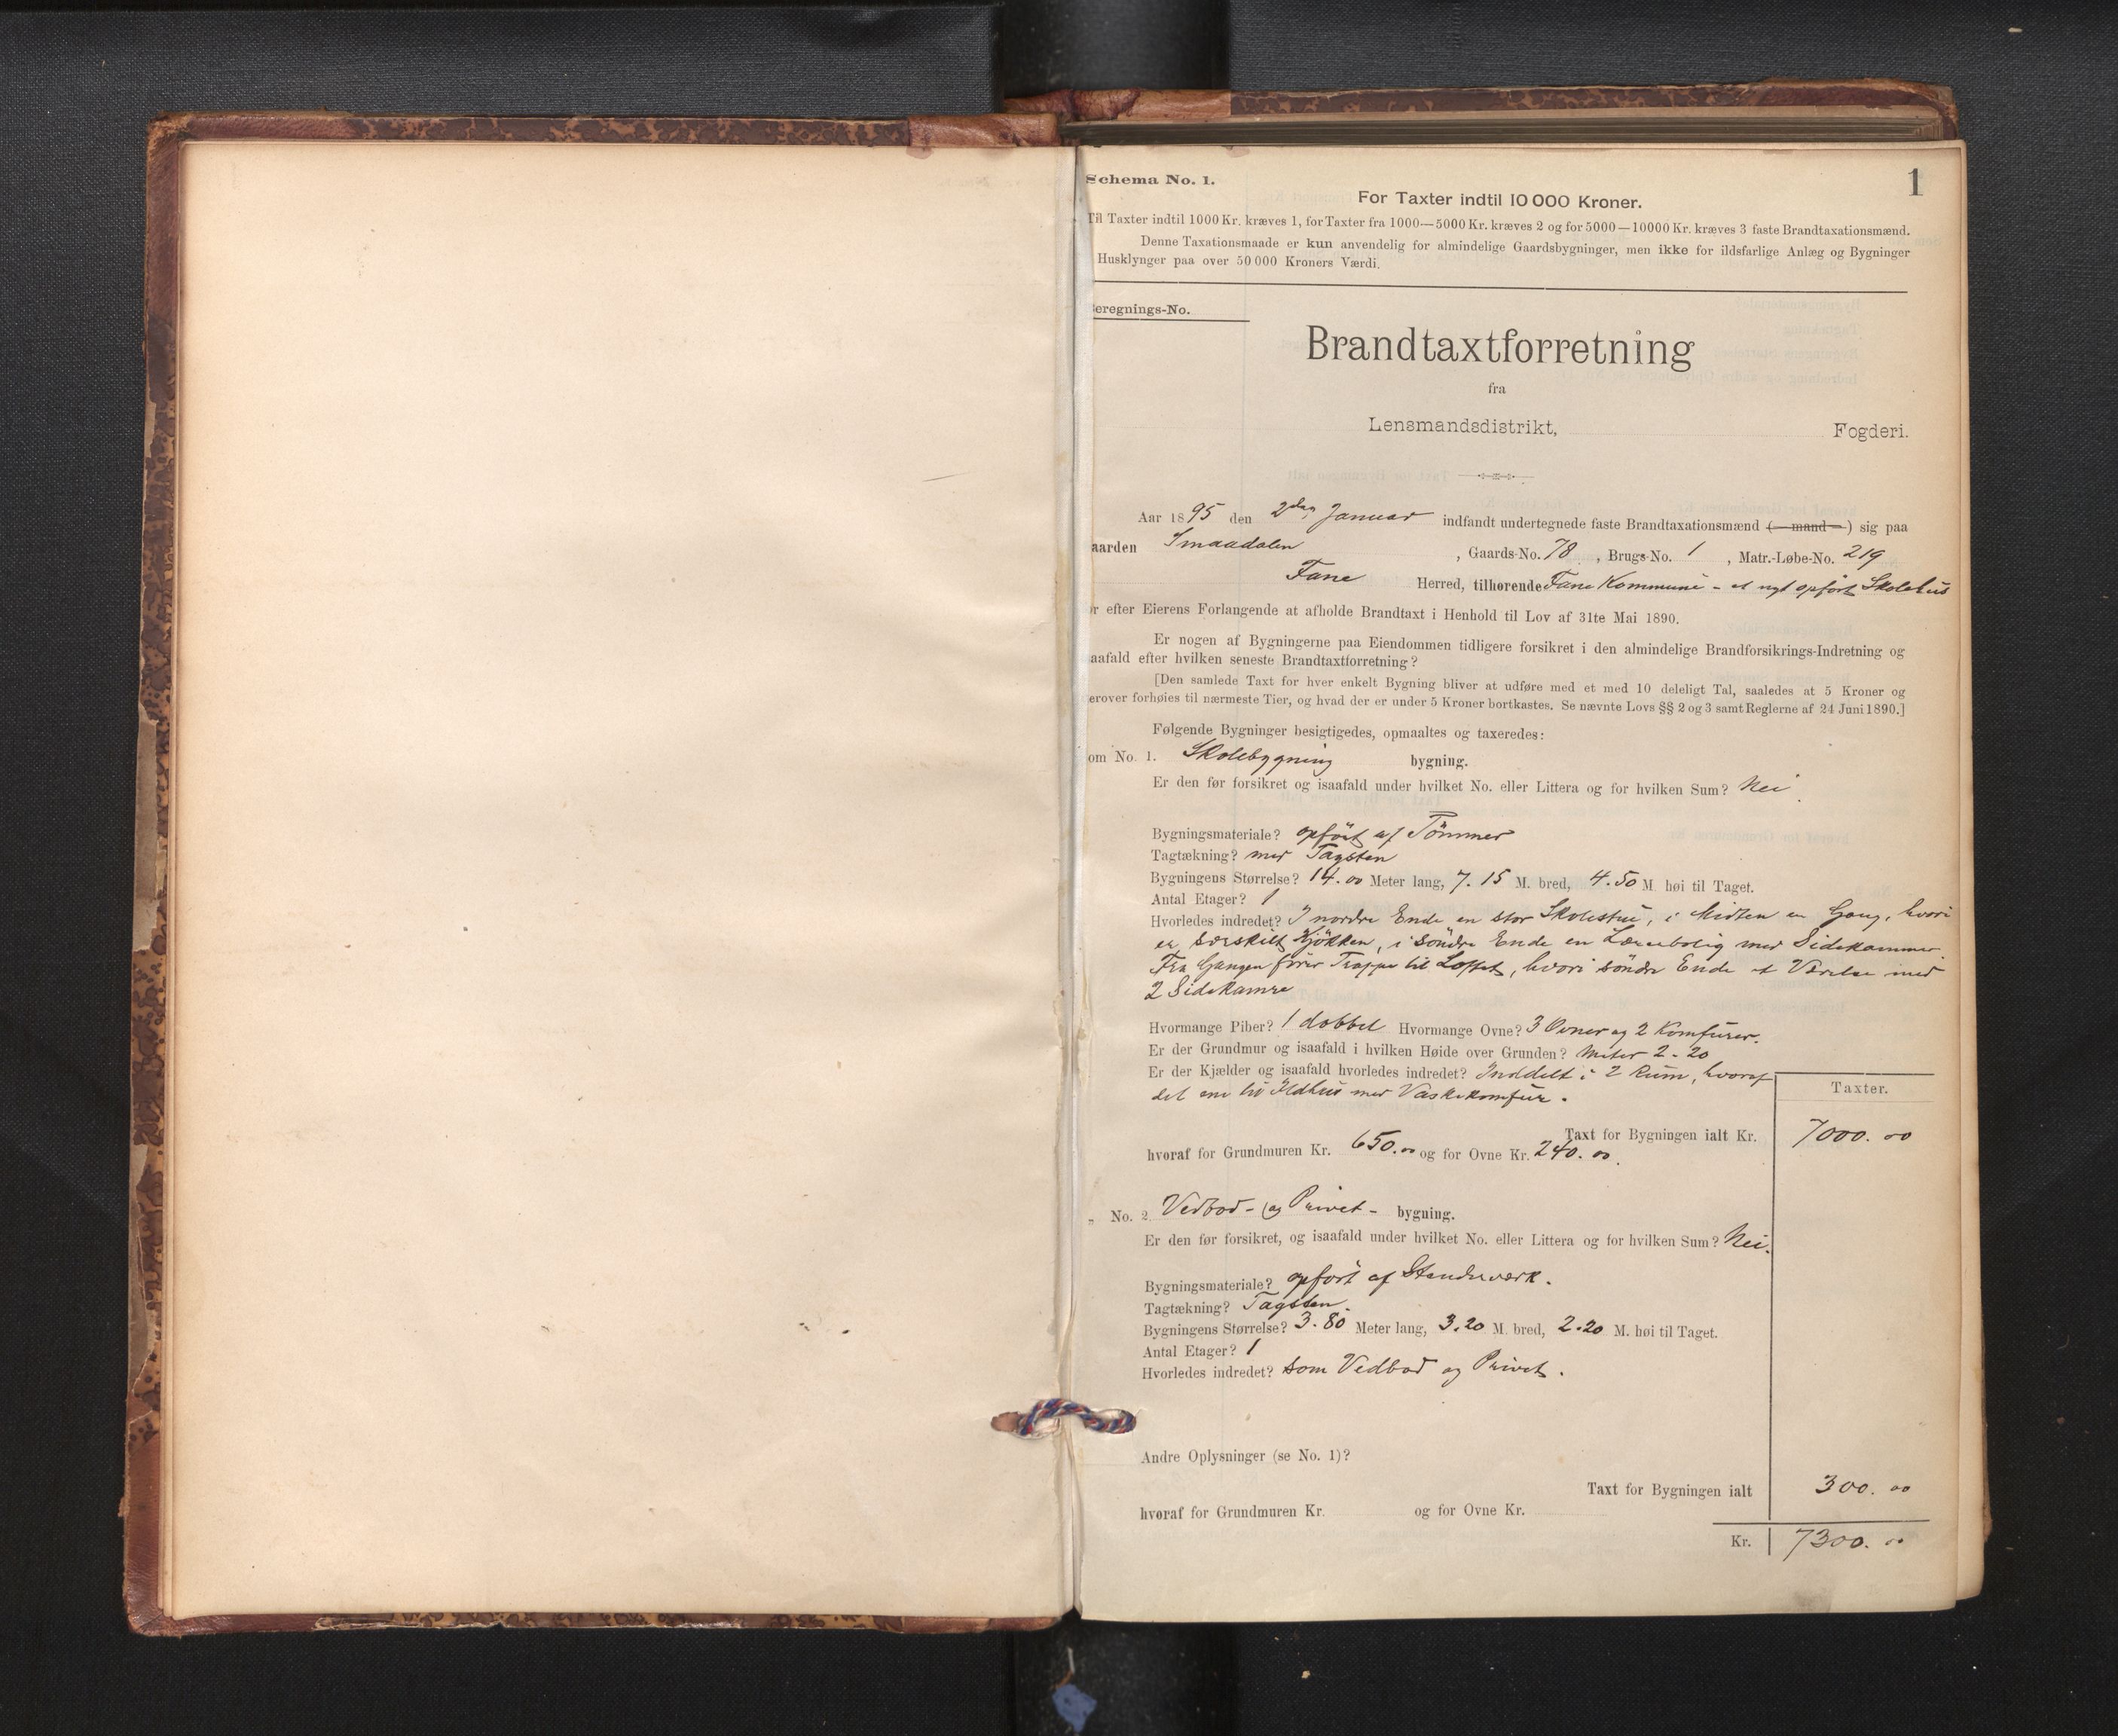 1
Schema No. 1.
For Taxter indtil 10 000 Kroner.
Til Taxter indtil 1000 Kr. kræves 1, for Taxter fra 1000—5000 Kr. kræves 2 og for 5000—10000 Kr. kræves 3 faste Brandtaxationsmænd.
Denne Taxationsmaade er kun anvendelig for almindelige Gaardsbygninger, men ikke for ildsfarlige Anlæg og Bygninger
Husklynger paa over 50 000 Kroners Værdi.
Beregnings-No.
Brandtaxtforretning
fra
Lensmandsdistrikt, Fogderi.
Aar 1895 den 2den Januar indfandt undertegnede faste Brandtaxationsmænd (—mand—) sig paa
aarden Smaadalen , Gaards-No. 78 , Brugs-No. 1 , Matr.-Løbe-No. 219
Fane Herred, tilhørende Fane Kommune - et nyt opført Skolehus
r efter Eierens Forlangende at afholde Brandtaxt i Henhold til Lov af 31te Mai 1890.
Er nogen af Bygningerne paa Eiendommen tidligere forsikret i den almindelige Brandforsikrings-Indretning og
aafald efter hvilken seneste Brandtaxtforretning?
[Den samlede Taxt for hver enkelt Bygning bliver at udføre med et med 10 deleligt Tal, saaledes at 5 Kroner og
erover forhøies til nærmeste Tier, og hvad der er under 5 Kroner bortkastes. Se nævnte Lovs §§ 2 og 3 samt Reglerne af 24 Juni 1890.]
Følgende Bygninger besigtigedes, opmaaltes og taxeredes:
om No. 1. Skolebygning bygning.
Er den før forsikret og isaafald under hvilket No. eller Littera og for hvilken Sum? Nei
Bygningsmateriale? opført af Tömmer
Tagtækning? med Tagsten
Bygningens Størrelse? 14.00 Meter lang, 7.15 M. bred, 4.50 M høi til Taget.
Antal Etager? 1
Hvorledes indredet? I nordre Ende en stor Skolestue, i Midten en Gang, hvori
er særskilt Kjökken, i söndre Ende en Lærerbolig med Sidekammer.
Fra Gangen fører Trappe til Loftet, hvori söndre Ende et Værelse med
2 Sidekamre
Hvormange Piber? 1 dobbel Hvormange Ovne? 3 Ovner og 2 Komfurer.
Er der Grundmur og isaafald i hvilken Høide over Grunden? Meter 2-20
Er der Kjælder og isaafald hvorledes indredet? Inddelt i 2 Rum, hvoraf
det ene til Ildhus med Vaskekomfur.
Taxter.
Taxt for Bygningen ialt Kr. 7000.00
hvoraf for Grundmuren Kr. 650.00 og for Ovne Kr. 240.00.
„ No. 2. Vedbod- og Privet- bygning.
Er den før forsikret, og isaafald under hvilket No. eller Littera og for hvilken Sum? Nei.
Bygningsmateriale? opført af Stenderværk.
Tagtækning? Tagsten.
Bygningens Størrelse? 3.80 Meter lang, 3.20 M. bred, 2.20 M. høi til Taget.
Antal Etager? 1
Hvorledes indredet? som Vedbod og Privet.
Andre Oplysninger (se No. 1)?
Taxt for Bygningen ialt 300.00
hvoraf for Grundmuren Kr. og for Ovne Kr.
Kr. 7300.00